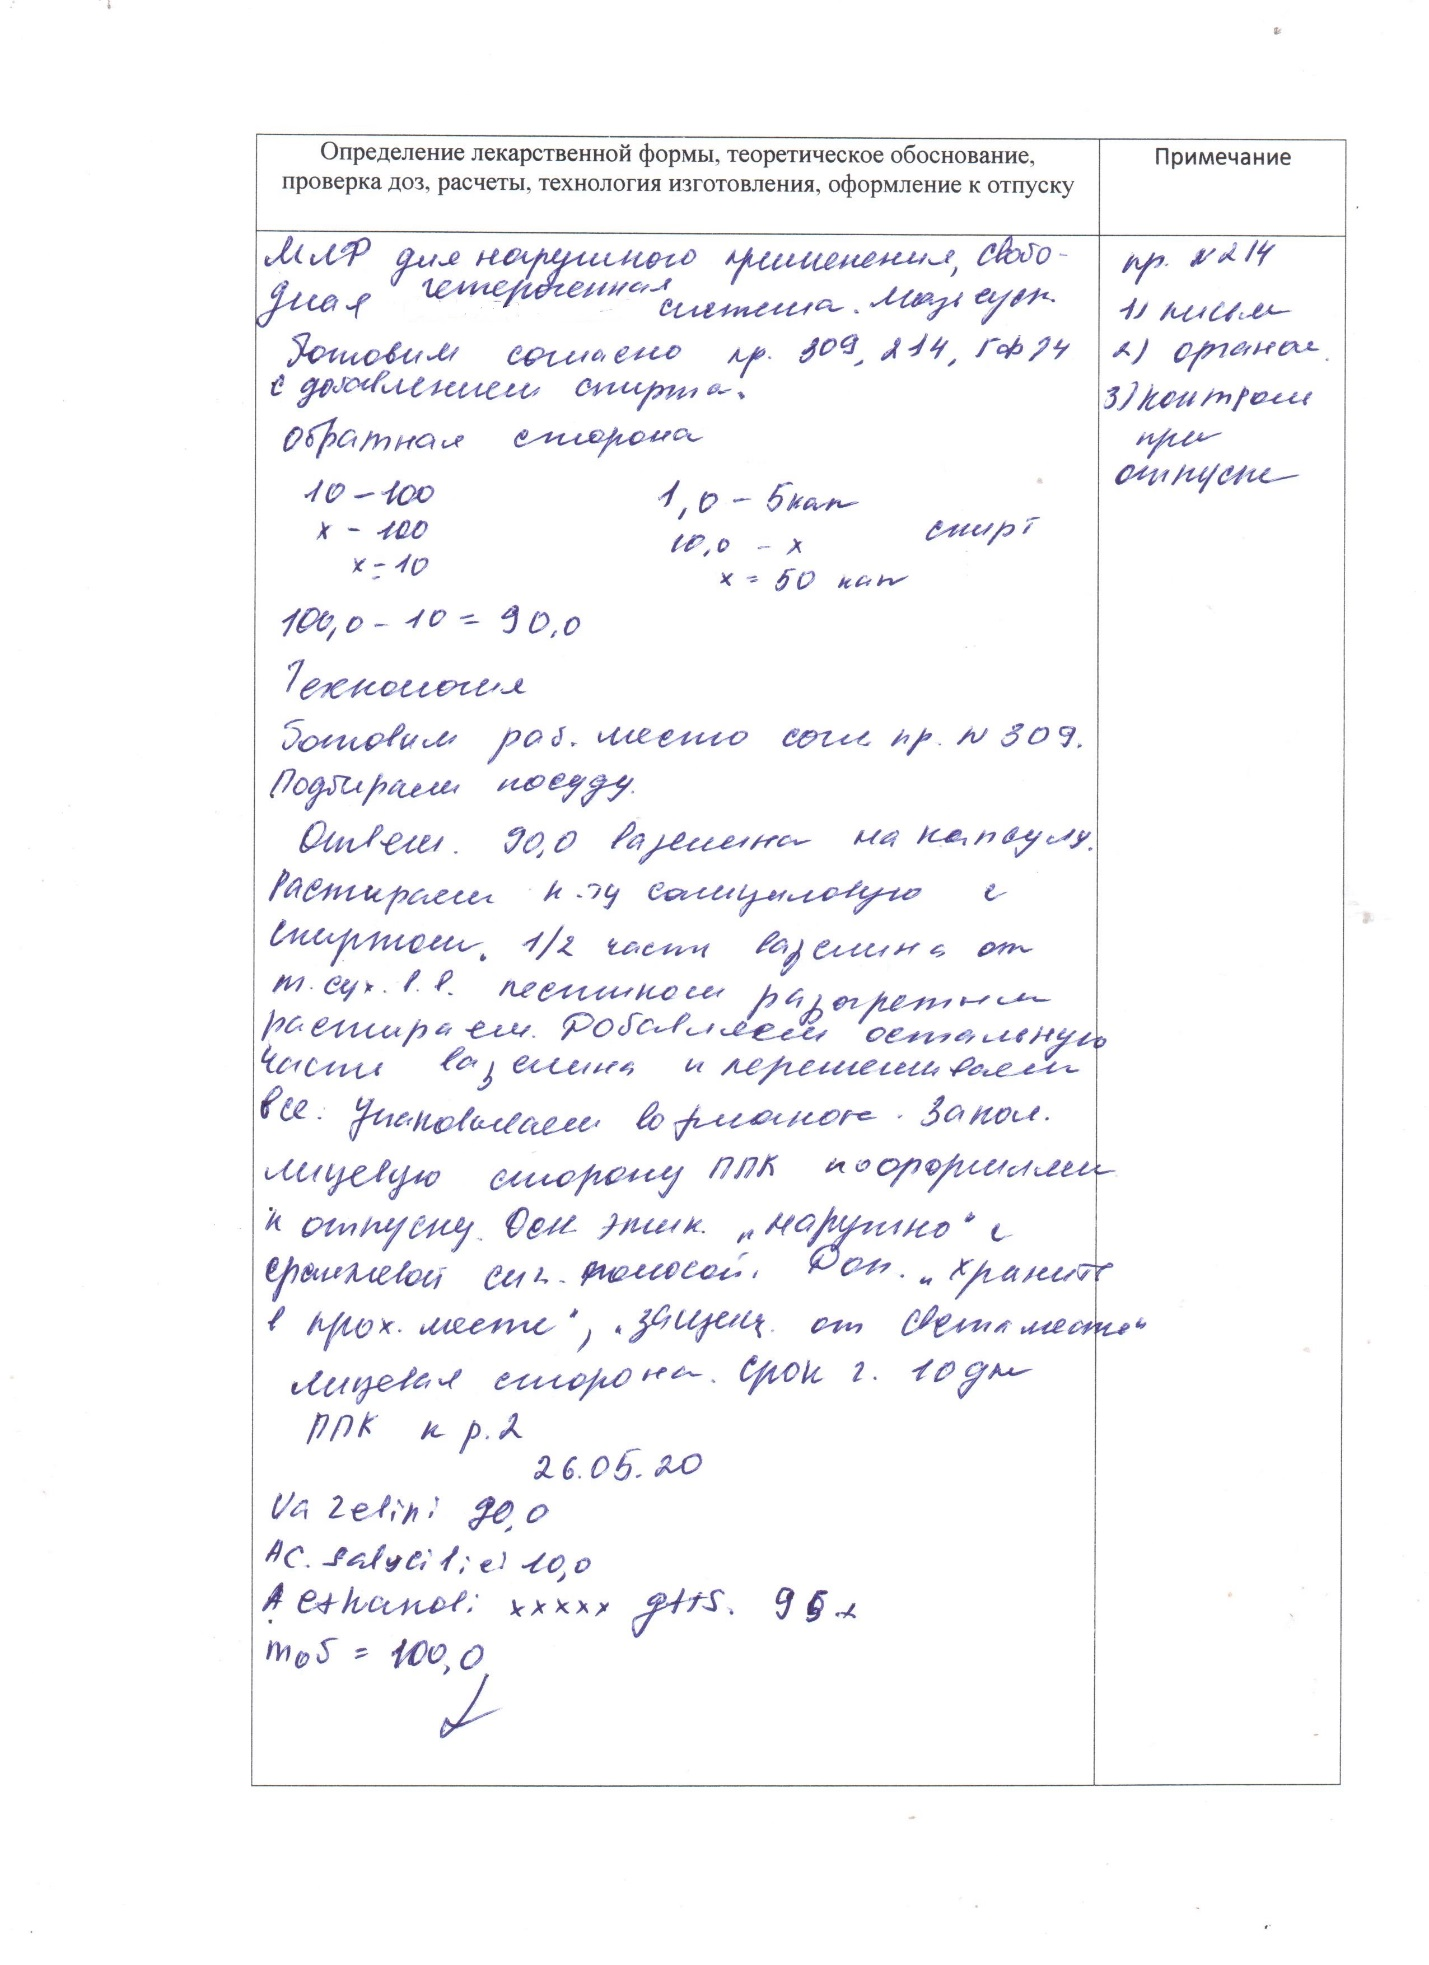 Определение лекарственной формы, теоретическое обоснование,
проверка доз, расчеты, технология изготовления, оформление к отпуску
Примечание
МЛФ для наружного применения, свобо-
дная гетерогенная система. Мазь сусп.
Готовим согласно пр. 309, 214, ГФ 14
с добавлением спирта.
Обратная сторона
10 – 100
х – 100
х = 10
1,0 – 5 кап
10,0 – х
х = 50 кап
спирт
100,0 – 10 = 90,0
Технология
Готовим раб. место согл пр. N 309.
Подбираем посуду.
Отвеш. 90,0 вазелина на капсулу.
Растираем к-ту салициловую с
спиртом. 1/2 части вазелина от
m. сух. в.в. пестиком разогретым
растираем. Добавляем остальную
части вазелина и перемешиваем
все. Упаковываем во флакон. Запол.
лицевую сторону ППК и оформляем
к отпуску. Осн. этик. „наружно" с
оранжевой сиг. полосой. Доп. „хранить
в прох. месте", „защищ. от света месте"
Лицевая сторона. Срок г. 10 дн
ППК к р. 2
26.05.20
Vazelini 90,0
Ac. salycilici 10,0
Aethanoli xxxxx gtts. 95
mоб = 100,0
пр. N 214
1) письм
2) органол.
3) контроль
при
отпуске